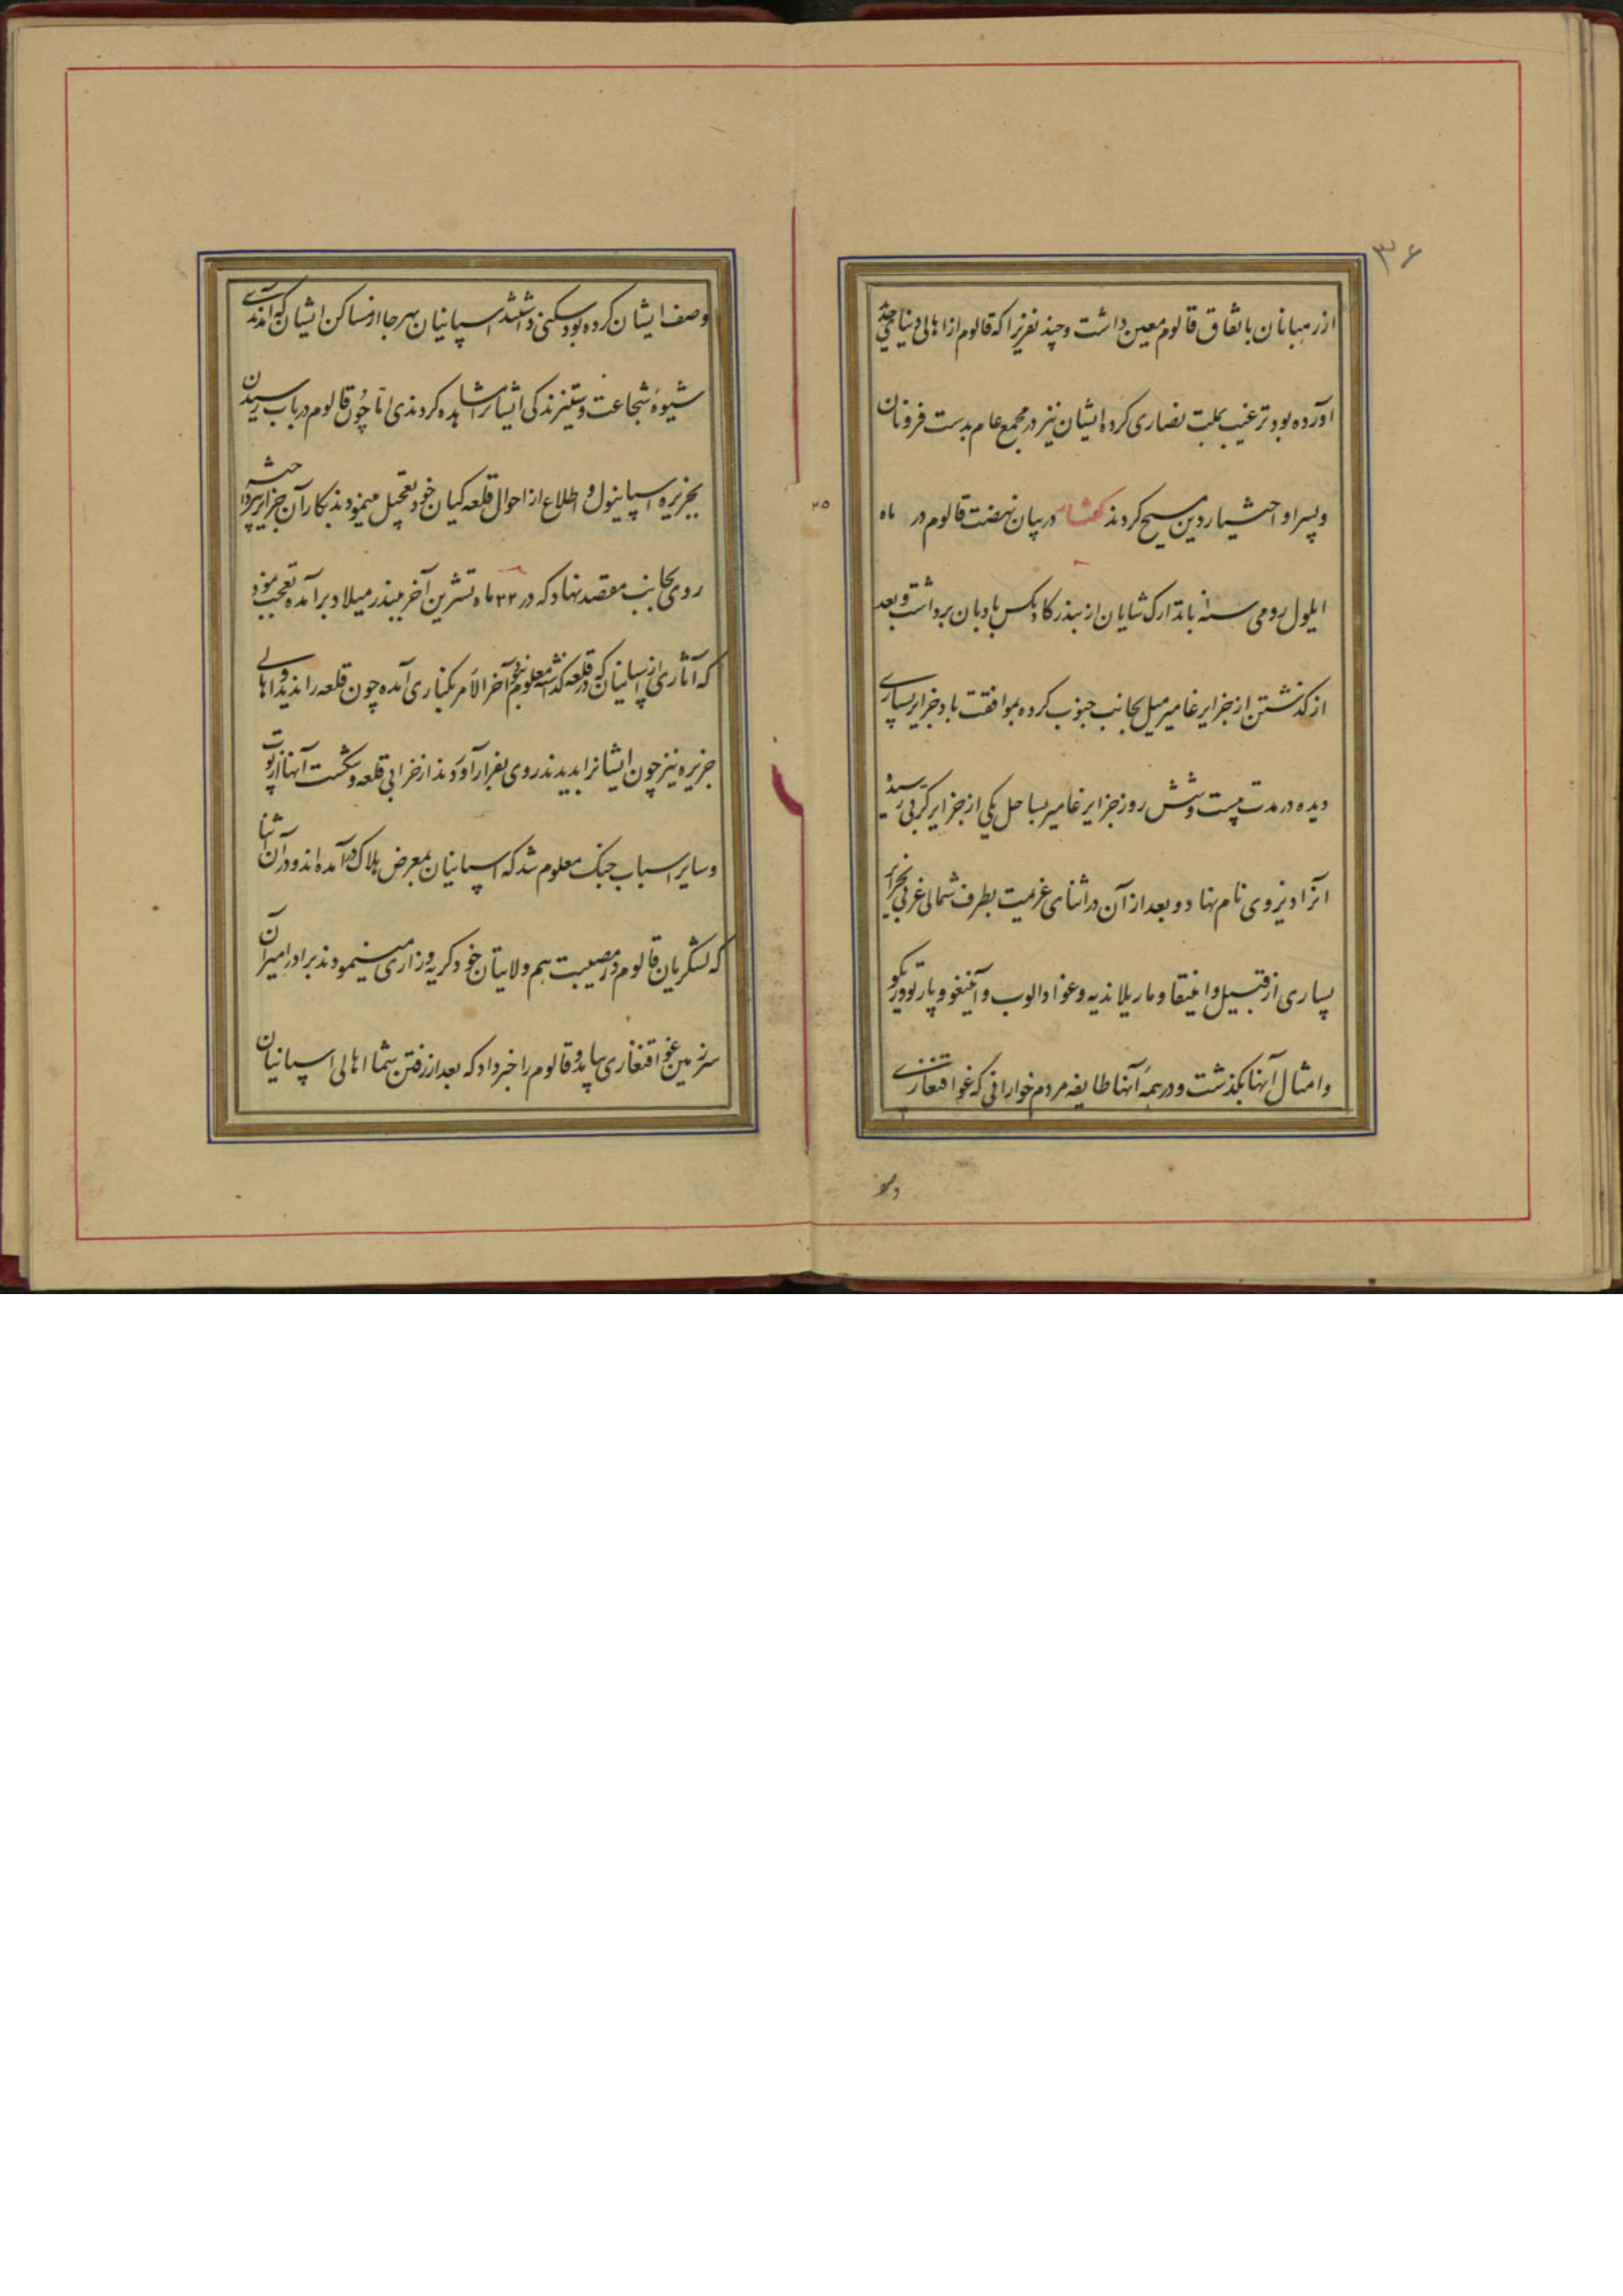 ۳۶
از رهبانان باتفاق قالوم معین داشت و چند نفریرا که قالوم از اهالی دنیای جدید
آورده بود ترغیب بملت نصاری کرد ایشان نیز در مجمع عام بدست فرونان
و پسر او اختیار دین مسیح کردند گفتار در بیان نهضت قالوم در ماه
ایلول رومی سنه باتدارک شایان از بندر کادیکس بادبان برداشت و بعد
از گذشتن از جزایر غامیر میل بجانب جنوب کرده بموافقت باد جزایر بسیاری
دیده در مدت بیست و شش روز جزایر غامیر بساحل یکی از جزایر کربی رسید
آنرا دیزوی نام نهاد و بعد از آن در اثنای عزیمت بطرف شمالی غربی بجزایر
بسیاری از قبیل و انتیقا و ماریلاندیه و غوادالوب و آنتیغو و پارتودریکو
و امثال آنها بگذشت و در همهٔ آنها طایفه مردم خوارانی که غواقنغاری
وصف
۳۵
وصف ایشان کرده بود سکنی داشتند اسپانیان بهرجا از مساکن ایشان که آمدندی
شیوهٔ شجاعت و ستیزندگی ایشانرا مشاهده کردندی اما چون قالوم در باب رسیدن
بجزیره اسپانیول و اطلاع از احوال قلعه کیان خود تعجیل مینمودند بکار آن جزایر نپرداخته
روی بجانب مقصد نهاد که در ۲۲ ماه تشرین آخر ببندر میلاد برآمده تعجب نمود
که آثاری از اسپانیان که در قلعه گذاشته معلوم نبود آخر الامر بکناری آمده چون قلعه را ندید و اهالی
جزیره نیز چون ایشانرا بدیدند روی بفرار آوردند از خرابی قلعه و شکست آنها از توپ
و سایر اسباب جنک معلوم شد که اسپانیان بمعرض هلاک درآمده‌اند و در آن اثنا
که لشکریان قالوم در مصیبت هم ولایتان خود گریه و زاری مینمودند برادر امیر آن
سرزمین غواقنغاری بیامد و قالوم را خبر داد که بعد از رفتن شما اهالی اسپانیان